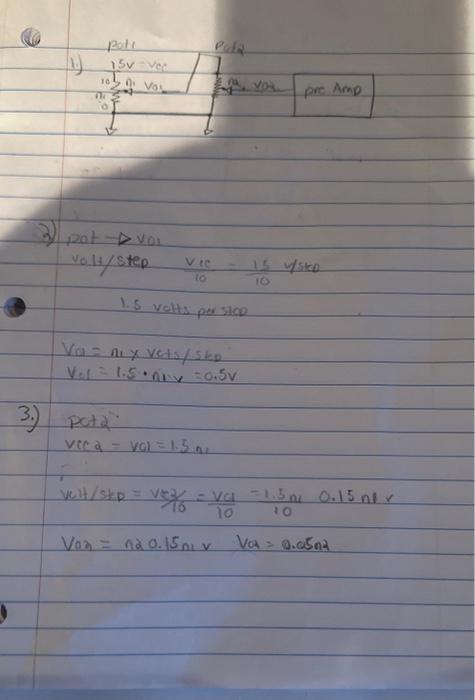 pot1 pot2
1.) 15V = Vcc
10 n1 Vo1 n2 Vo2 pre Amp
n1
0
2) pot → Vo1
Volt/step Vcc/10 = 15/10 V/step
1.5 volts per step
Vo1 = n1 x volts/step
Vo1 = 1.5 • n1 v = 0.5v
3.) pot2
Vcc2 = Vo1 = 1.5 n1
Volt/step = Vcc2/10 = Vo1/10 = 1.5n1/10 0.15 n1 v
Vo2 = n2 0.15n1 v Vo2 = 0.05n2